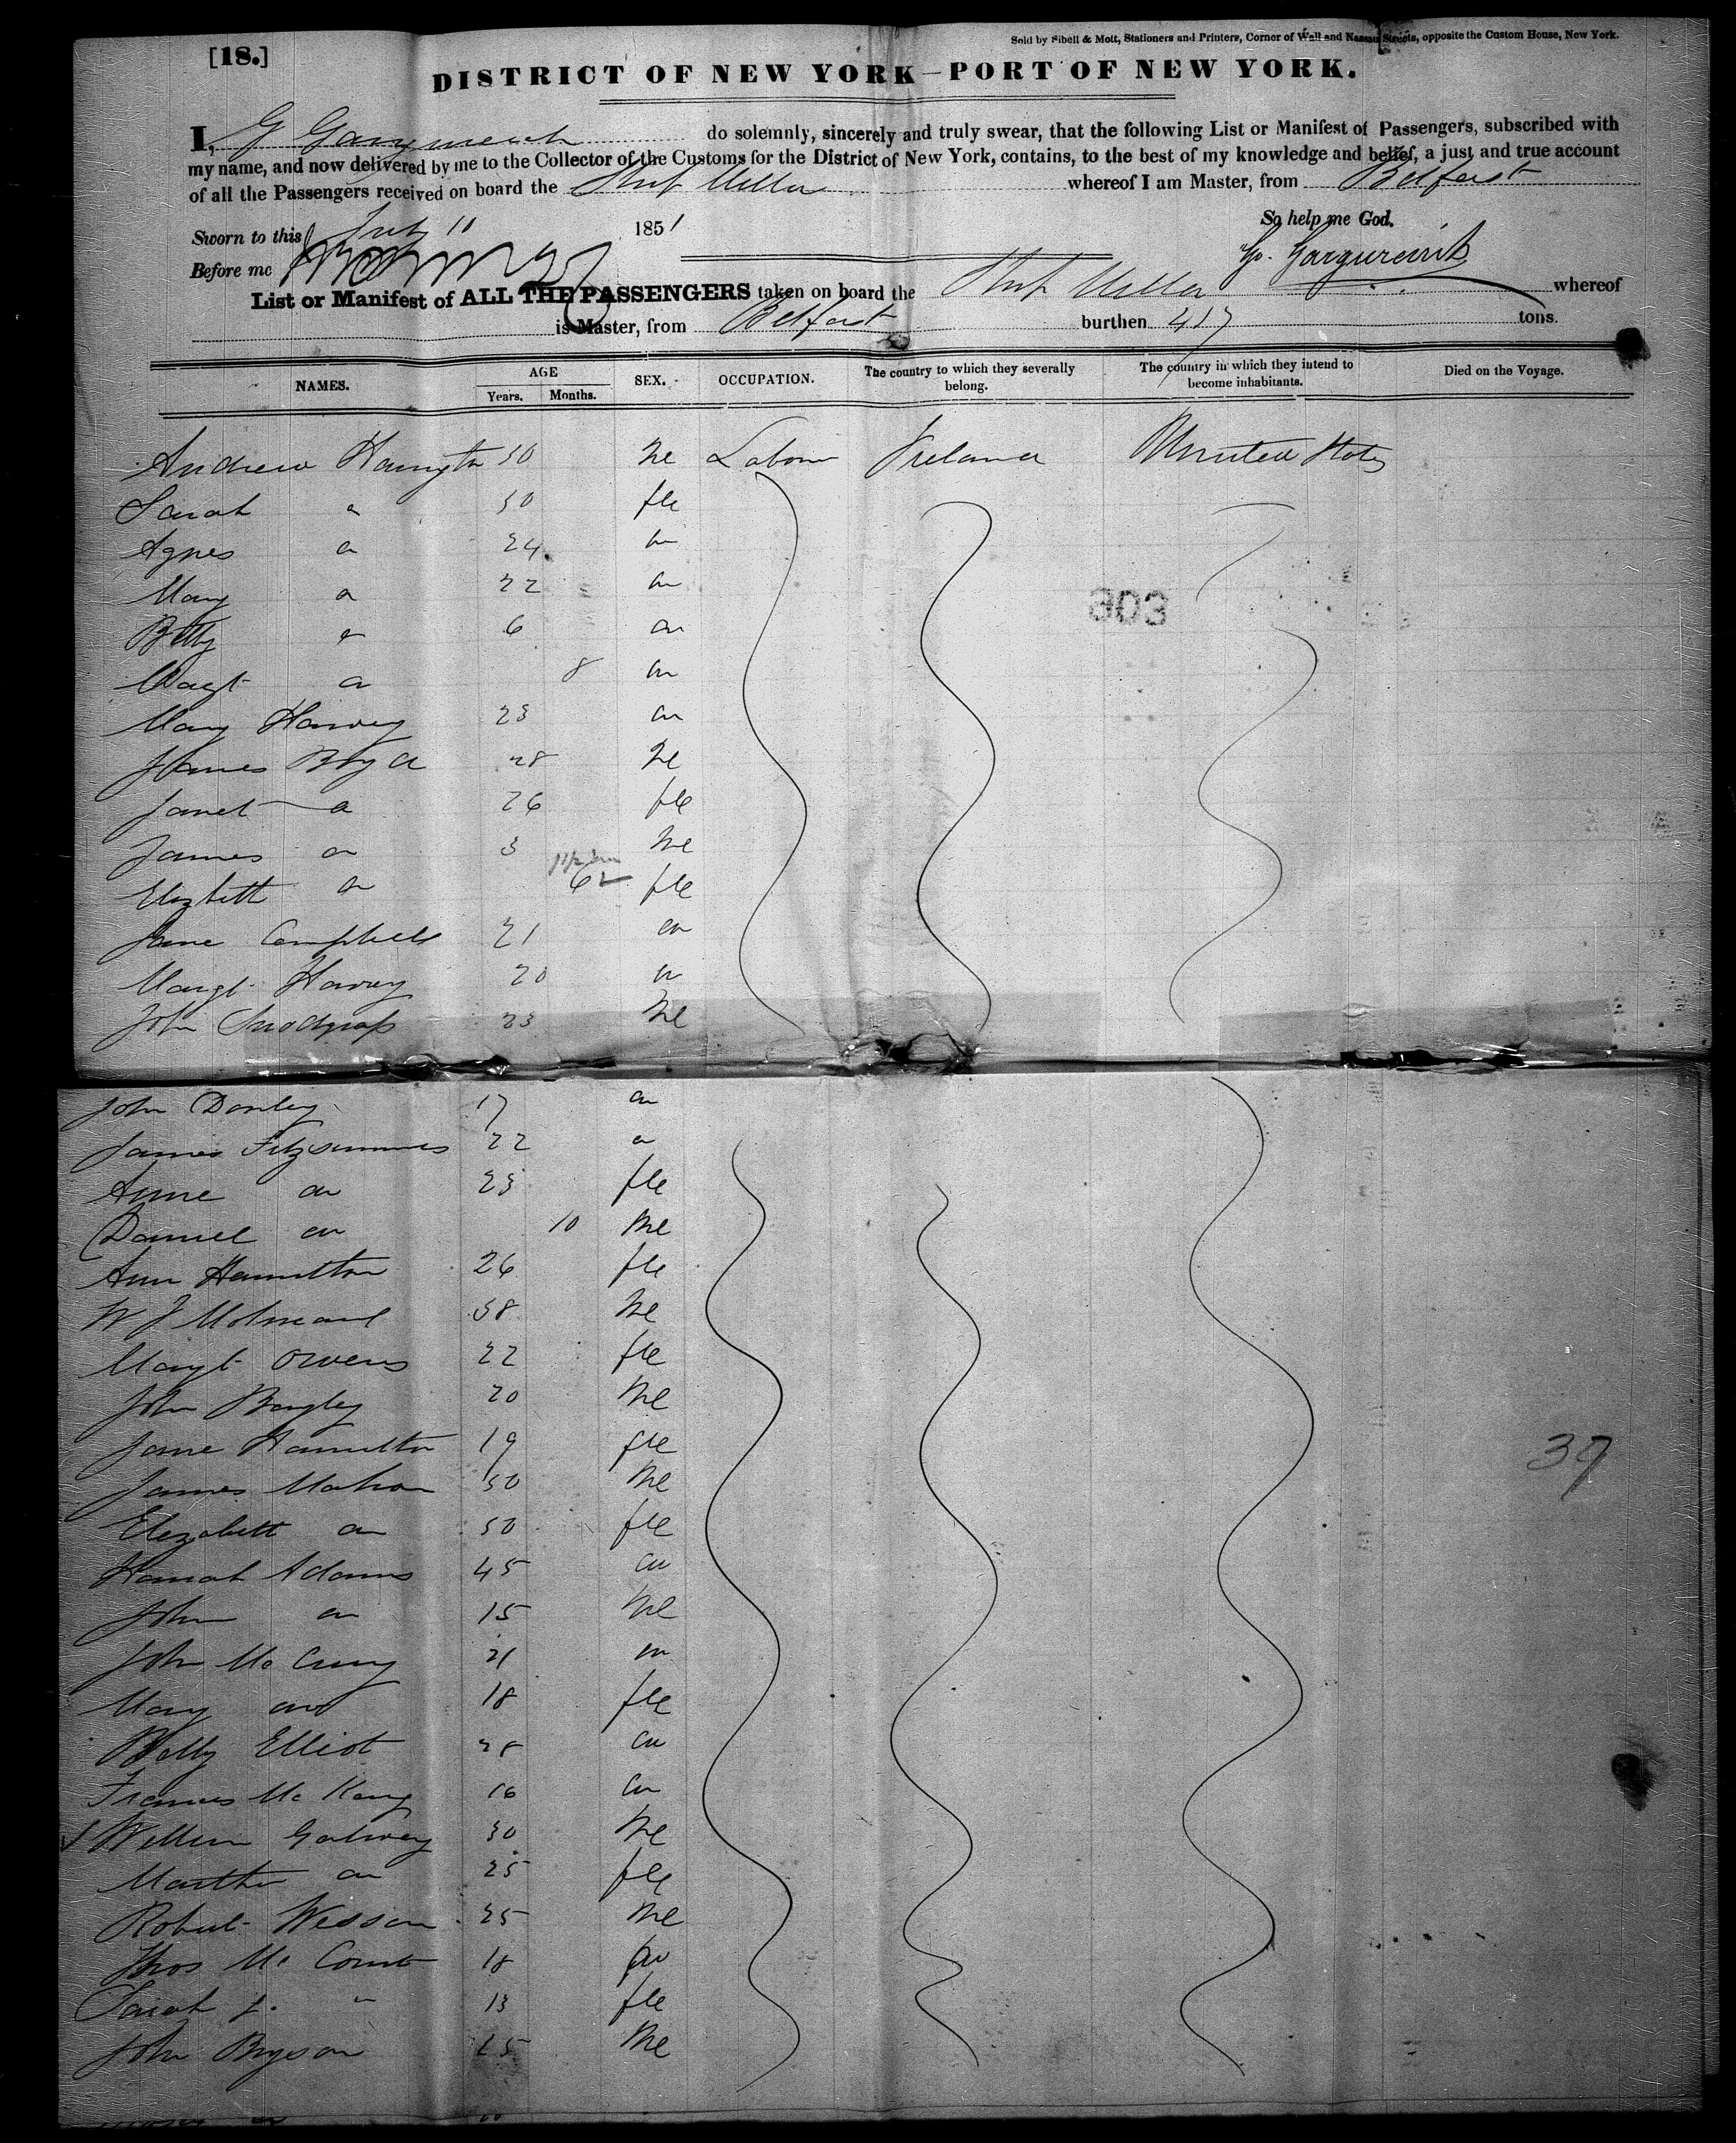 [18.]
Sold by Sibell & Mott, Stationers and Printers, Corner of Wall and Nassau Streets, opposite the Custom House, New York.
DISTRICT OF NEW YORK—PORT OF NEW YORK.
I, G do solemnly, sincerely and truly swear, that the following List or Manifest of Passengers, subscribed with
my name, and now delivered by me to the Collector of the Customs for the District of New York, contains, to the best of my knowledge and belief, a just and true account
of all the Passengers received on board the Ship whereof I am Master, from Belfast
So help me God.
Sworn to this July 11 1851
Before me
List or Manifest of ALL THE PASSENGERS taken on board the Ship whereof
is Master, from Belfast burthen 417 tons.
NAMES. AGE Years. Months. SEX. OCCUPATION. The country to which they severally belong. The country in which they intend to become inhabitants. Died on the Voyage.
Andrew 50 Me Labour Ireland United States
Sarah " 50 fle
Agnes " 24 "
Mary " 22 "
Betty " 6 "
Margt " 8 "
Mary Harvey 23 "
James Boyd 28 Me
303
Janet " 26 fle
James " 3 Me
Elizbeth " 6 fle
Jane Campbell 21 "
Margt Harvey 20 "
John Snodgrass 23 Me
John Donley 17 "
James Fitzsimmons 22 "
Anne " 23 fle
Daniel " 10 Me
Ann Hamilton 26 fle
W J 38 Me
Margt Owens 22 fle
John Bagley 20 Me
Jane Hamilton 19 fle
James Mahon 50 Me
37
Elizabeth " 50 fle
Hanah Adams 45 "
John " 15 Me
John 21 "
Mary " 18 fle
Betty Elliot 28 "
Frances Mc 16 "
William Galway 30 Me
Martha " 25 fle
Robert Wesson 25 Me
Thos 18
Sarah J. " 13 fle
John Bryson 25 Me